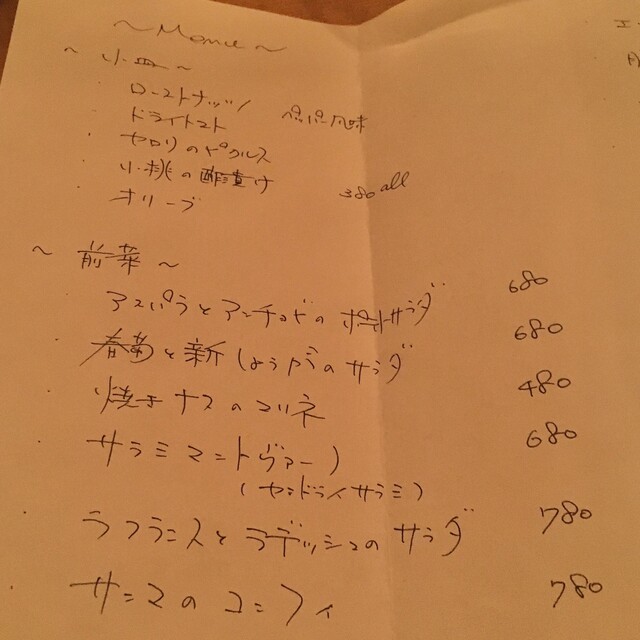 ~ Menu ~
~ 小皿 ~
ローストナッツ
ドライトマト
セロリのピクルス
小桃の酢漬け
オリーブ
風味
380 all
~ 前菜 ~
アスパラとアンチョビのポテトサラダ 680
春菊と新しょうがのサラダ 680
焼きナスのマリネ 480
サラミマントヴァーノ 680
(センドライサラミ)
ラフランスとラディッシュのサラダ 780
サンマのコンフィ 780
エ